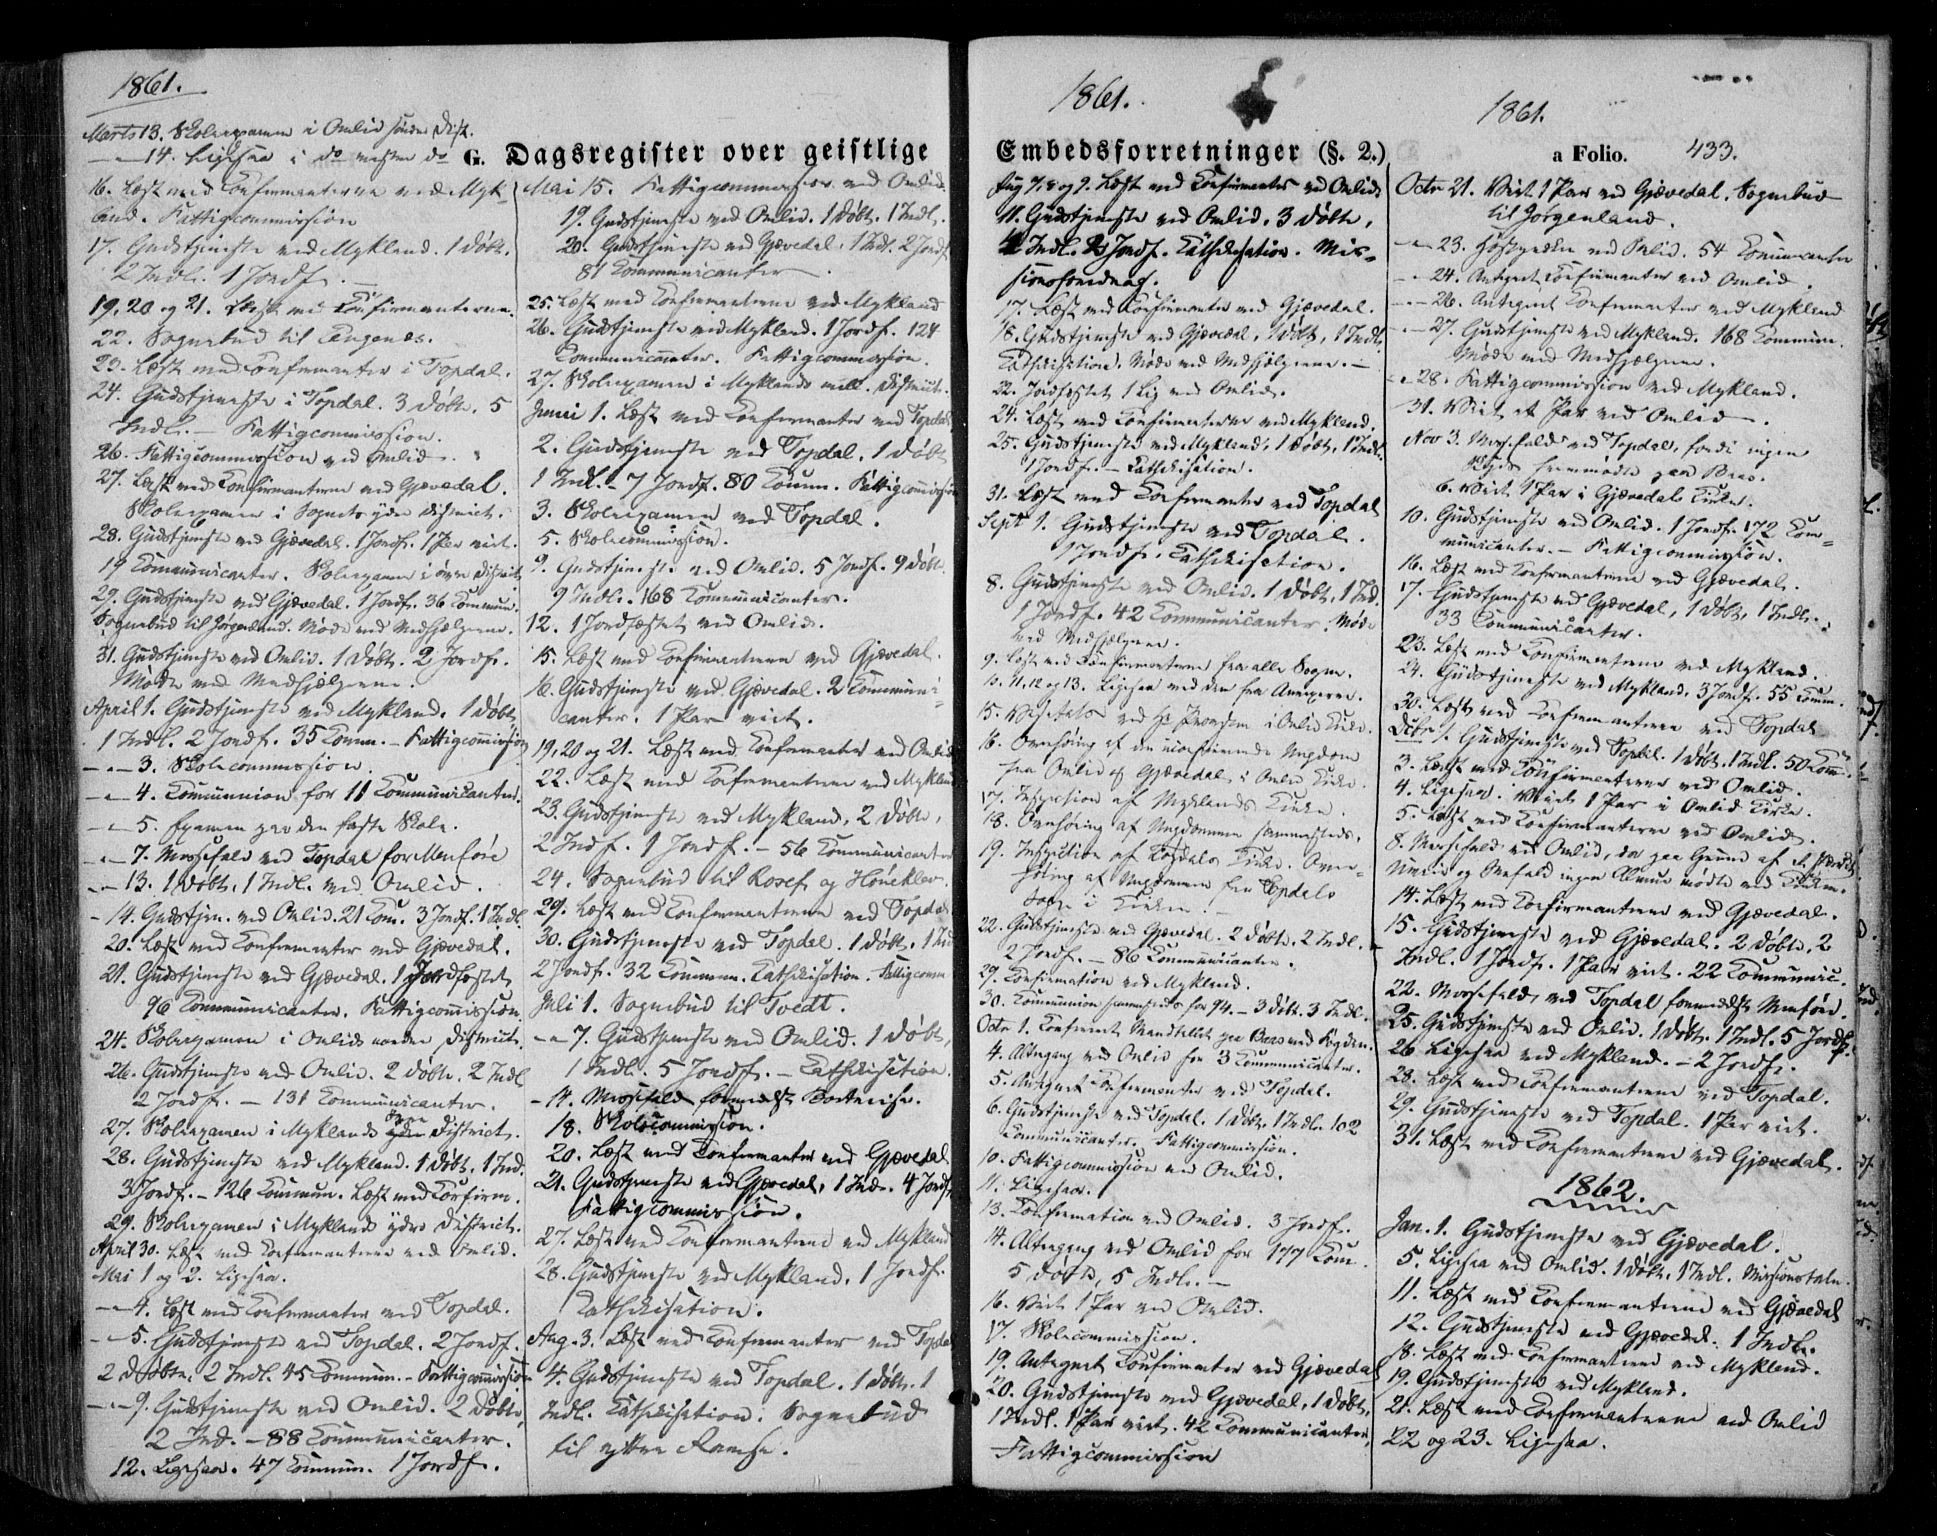 1861.
Marts 13. Skolexamen i Omlid søndre Distr.
— 14. Ligesaa i do vestre do
G. Dagsregister over geistlige
16. Læst med Confirmanterne ved Myk-
land. Fattigcommission
17. Gudstjeneste ved Mykland. 1 Døbt.
2 Indl. 1 Jordf.
19, 20 og 21. Læst med Confirmanterne.
22. Sognebud til Engenes.
23. Læst med Confirmanter i Topdal.
24. Gudstjeneste i Topdal. 3 Døbte. 5
Indl. — Fattigcommission.
26. Fattigcommission ved Omlid.
27. Læst med Confirmanterne ved Gjævedal.
Skolexamen i Sognets ydre District.
28. Gudstjeneste ved Gjævedal. 1 Jordf. 1 Par viet.
19 Communicanter. Skolexamen i øvre District
29. Gudstjeneste ved Gjævedal. 1 Jordf. 36 Commun.
Sognebud til Jørgenland. Møde med Medhjælperne.
31. Gudstjeneste ved Omlid. 1 Døbt. 2 Jordf.
Møde med Medhjælperne.
April 1. Gudstjeneste ved Mykland. 1 Døbt,
1 Indl. 2 Jordf. 35 Comm. — Fattigcommission
— 3. Skolecommission.
— 4. Communion for 11 Communicanter.
— 5. Examen paa den faste Skole.
— 7. Messefald ved Topdal for Menføre
— 13. 1 Døbt, 1 Indl. ved Omlid.
— 14. Gudstjen. ved Omlid. 21 Com. 3 Jordf. 1 Indl.
20. Læst med Confirmanter ved Gjævedal.
21. Gudstjeneste ved Gjævedal. 1 Jordfæstet,
96 Communicanter. Fattigcommission
24. Skolexamen i Omlids nordre District.
26. Gudstjeneste ved Omlid. 2 Døbte. 2 Indl
2 Jordf. — 131 Communicanter.
27. Skolexamen i Myklands øvre District.
28. Gudstjeneste ved Mykland. 1 Døbt, 1 Ind.
3 Jordf. — 126 Commun. Læst med Confirm.
29. Skolexamen i Myklands ydre District.
April 30. Læst med Confirmanterne ved Omlid.
Mai 1 og 2. Ligesaa.
— 4. Læst med Confirmanter ved Topdal.
— 5. Gudstjeneste ved Topdal. 2 Jordf.
2 Døbte, 2 Indl. 45 Commun. — Fattigcommission
— 9. Gudstjeneste ved Omlid. 2 Døbte,
2 Ind. — 88 Communicanter.
12. Ligesaa. 47 Commun. 1 Jordf.
Mai 15. Fattigcommission ved Omlid.
19. Gudstjeneste ved Omlid. 1 Døbt. 1 Indl.
20. Gudstjeneste ved Gjævedal. 1 Indl. 2 Jordf
81 Communicanter.
25. Læst med Confirmanterne ved Mykland
26. Gudstjeneste ved Mykland. 1 Jordf. 124
Communicanter. Fattigcommission.
27. Skolexamen i Myklands mell. District.
Junii 1. Læst med Confirmanter ved Topdal
2. Gudstjeneste ved Topdal. 1 Døbt
1 Indl. — 7 Jordf. 80 Comm. Fattigcommission
3. Skolexamen ved Topdal.
5. Skolecommission.
9. Gudstjeneste ved Omlid. 5 Jordf. 9 Døbte.
9 Indl. 168 Communicanter.
12. 1 Jordfæstet ved Omlid.
15. Læst med Confirmanterne ved Gjævedal.
16. Gudstjeneste ved Gjævedal. 2 Communi-
canter. 1 Par viet.
19, 20 og 21. Læst med Confirmanter ved Omlid
22. Læst med Confirmanterne ved Mykland
23. Gudstjeneste ved Mykland, 2 Døbte,
2 Indl. 1 Jordf. — 56 Communicanter
24. Sognebud til Rosef og
29. Læst med Confirmanterne ved Topdal
30. Gudstjeneste ved Topdal. 1 Døbt. 1 Ind
2 Jordf. 32 Commun. Cathekisation. Fattigcomm
Juli 1. Sognebud til Tvedt.
— 7. Gudstjeneste ved Omlid. 1 Døbt,
1 Indl. 5 Jordf. — Cathekisation.
— 14. Messefald formedelst Bortreise.
18. Skolecommission.
20. Læst med Confirmanter ved Gjævedal
21. Gudstjeneste ved Gjævedal, 1 Indl. 4 Jordf,
Fattigcommission.
27. Læst med Confirmanterne ved Mykland
28. Gudstjeneste ved Mykland. 1 Jordf.
Cathekisation.
Aug. 3. Læst med Confirmanter ved Topdal
4. Gudstjeneste ved Topdal. 1 Døbt. 1
Indl. Cathekisation. Sognebud
til ytre Ramse.
1861.
1861.
Embedsforretninger (§. 2.)
a Folio. 433.
Aug 7, 8 og 9. Læst med Confirmanter ved Omlid
11. Gudstjeneste ved Omlid. 3 Døbte,
4 Indl. 2 Jordf. Cathekisation. Mis-
sionsforedrag.
17. Læst med Confirmanter ved Gjævedal.
18. Gudstjeneste ved Gjævedal, 1 Døbt, 1 Indl.
Cathekisation. Møde med Medhjælperne. —
22. Jordfæstet 1 Lig ved Omlid.
24. Læst med Confirmanterne ved Mykland.
25. Gudstjeneste ved Mykland, 1 Døbt, 1 Indl.
1 Jordf. — Cathekisation.
31. Læst med Confirmanter ved Topdal
Sept 1. Gudstjeneste ved Topdal.
1 Jordf. Cathekisation.
8. Gudstjeneste ved Omlid. 1 Døbt, 1 Ind.
1 Jordf. 42 Communicanter. Møde
med Medhjælperne.
9. Læst med Confirmanterne fra alle Sogne.
10. 11, 12 og 13. Ligesaa med dem fra Annexerne.
15. Visitats ved Hr Provsten i Omlid Kirke.
16. Overhøring af den Ungdom
fra Omlid og Gjævedal i Omlid Kirke.
17. Inspection af Myklands Kirke.
18. Overhøring af Ungdommen sammesteds.
19. Inspection af Topdals Kirke. Over-
høring af Ungdommen fra Topdals
Sogn i Kirken. —
22. Gudstjeneste ved Gjævedal. 2 Døbte. 2 Indl.
2 Jordf. — 86 Communicanter.
29. Confirmation ved Mykland.
30. Communion sammesteds for 94. — 3 Døbt. 3 Indl.
Octr 1. Confereret Mandtallet paa Baas med Fogden.
4. Altergang ved Omlid for 3 Communicanter.
5. Antegnet Confirmanter ved Topdal.
6. Gudstjeneste ved Topdal. 1 Døbt, 1 Indl. 102
Communicanter. Fattigcommission.
10. Fattigcommission ved Omlid.
11. Ligesaa.
13. Confirmation ved Omlid. 3 Jordf.
14. Altergang ved Omlid for 177 Com.
5 Døbte, 5 Indl. —
16. Viet 1 Par ved Omlid.
17. Skolecommission.
19. Antegnet Confirmanter ved Gjævedal
20. Gudstjeneste ved Gjævedal, 1 Døbt,
1 Indl. 1 Par viet. 42 Communicanter,
Fattigcommission
Octr 21. Viet 1 Par ved Gjævedal. Sognebud
til Jørgenland.
— 23. ved Omlid. 54 Communicanter
— 24. Antegnet Confirmanter ved Omlid.
— 26. Antegnet Confirmanter ved Mykland
— 27. Gudstjeneste ved Mykland. 168 Commun.
Møde med Medhjælperne.
— 28. Fattigcommission ved Mykland.
31. Viet et Par ved Omlid.
Nov 3. Messefald ved Topdal, fordi ingen
Skyds fremmødte paa Baas.
6. Viet 1 Par i Gjævedals Kirke.
10. Gudstjeneste ved Omlid. 1 Jordf. 172 Com-
municanter. — Fattigcommission.
16. Læst med Confirmanterne ved Gjævedal.
17. Gudstjeneste ved Gjævedal, 1 Døbt, 1 Indl.
33 Communicanter.
23. Læst med Confirmanterne ved Mykland.
24. Gudstjeneste ved Mykland, 3 Jordf. 55 Comm.
30. Læst med Confirmanterne ved Topdal
Decbr 1. Gudstjeneste ved Topdal. 1 Døbt. 1 Indl. 50 Com.
3. Læst med Confirmanterne ved Omlid.
4. Ligesaa. Viet 1 Par i Omlid Kirke.
5. Læst med Confirmanterne ved Omlid.
8. Messefald ved Omlid, da paa Grund af
og Snefald ingen Almue mødte ved Kirken.
14. Læst med Confirmanterne ved Gjævedal.
15. Gudstjeneste ved Gjævedal. 2 Døbte, 2
Indl. 1 Jordf. 1 Par viet. 22 Communic.
22. Messefald ved Topdal formedelst Menføre.
25. Gudstjeneste ved Omlid. 1 Døbt. 1 Indl. 5 Jordf.
26 Ligesaa ved Mykland. — 2 Jordf.
28. Læst med Confirmanterne ved Topdal.
29. Gudstjeneste ved Topdal. 1 Par viet.
31. Læst med Confirmanterne ved Gjævedal.
1862.
Jan. 1. Gudstjeneste ved Gjævedal.
5. Ligesaa ved Omlid. 1 Døbt, 1 Indl. Missionstale.
11. Læst med Confirmanterne ved Gjævedal
12. Gudstjeneste ved Gjævedal. 1 Indl.
18. Læst med Confirmanterne ved Mykland.
19. Gudstjeneste ved Mykland.
21. Læst med Confirmanterne ved Omlid
22 og 23. Ligesaa.